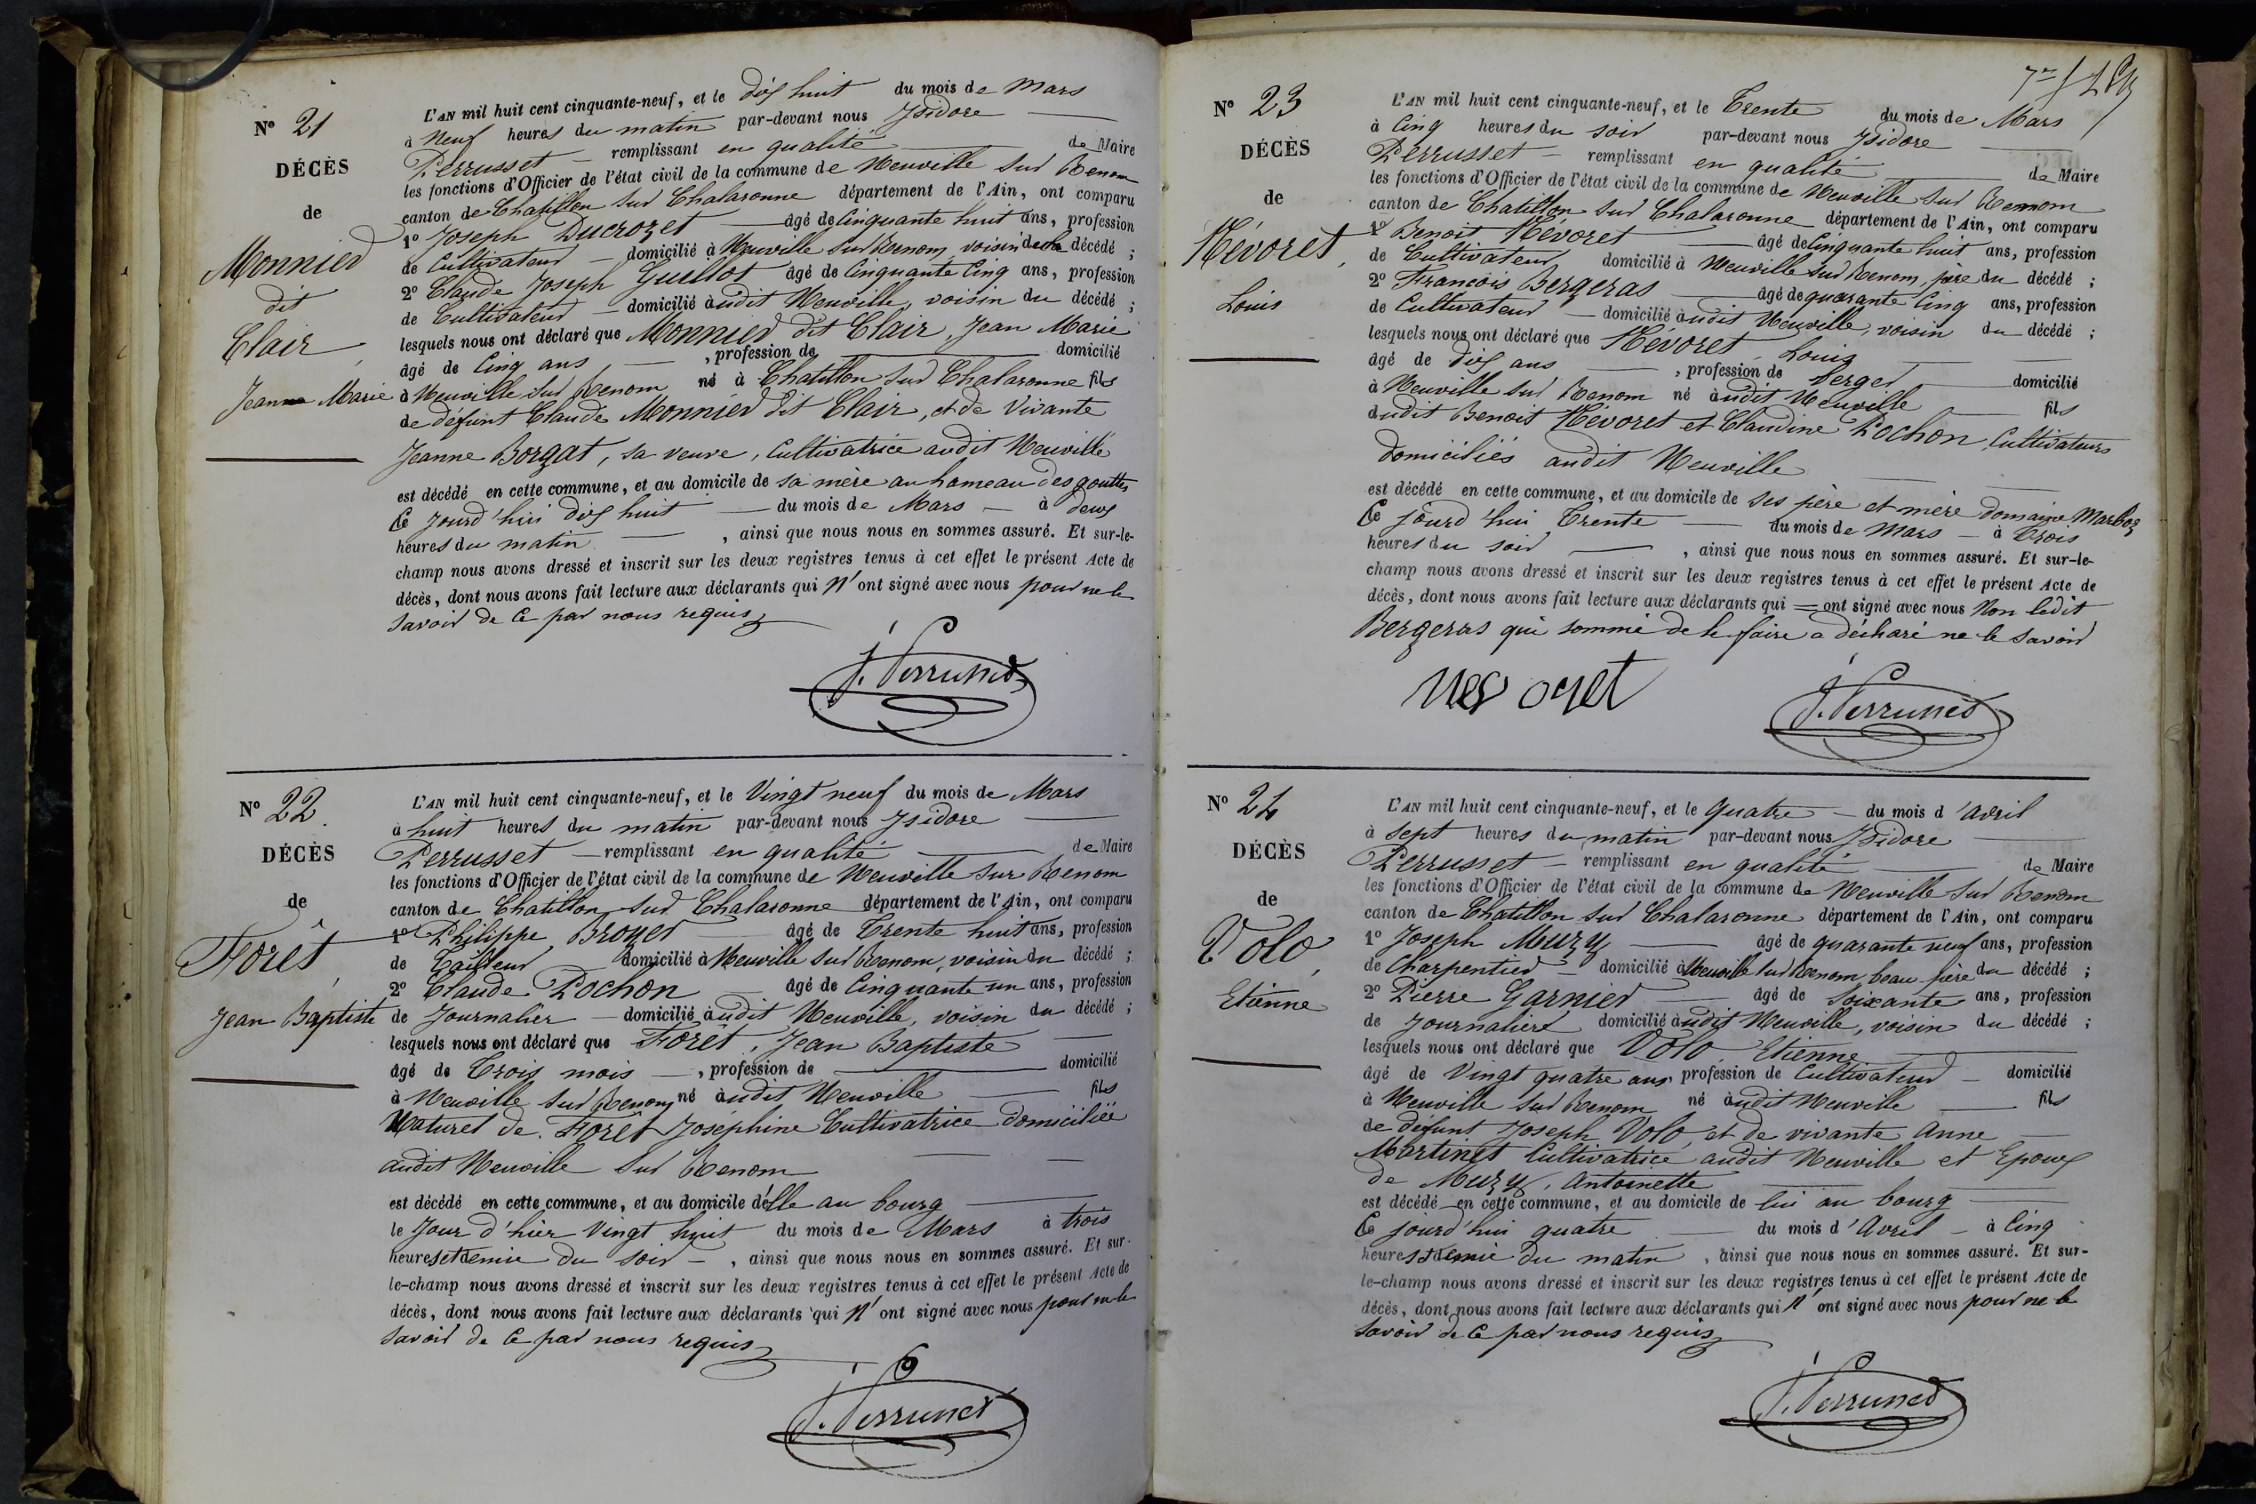 N° 21
DÉCÈS
de
Monnier
dit
Clair,
Jean Marie
L'AN mil huit cent cinquante-neuf, et le dix huit du mois de Mars
à Neuf heures du matin par-devant nous Isidore
Perrusset remplissant en qualité de Maire
les fonctions d'Officier de l'état civil de la commune de Neuville sur Renom
canton de Chatillon sur Chalaronne département de l'Ain, ont comparu
1° Joseph Ducrozet âgé de Cinquante huit ans, profession
de Cultivateur domicilié à Neuville sur Renom, voisin du décédé ;
2° Claude Joseph Guillot âgé de Cinquante Cinq ans, profession
de Cultivateur domicilié audit Neuville, voisin du décédé ;
lesquels nous ont déclaré que Monnier dit Clair, Jean Marie
âgé de Cinq ans , profession de domicilié
à Neuville sur Renom né à Chatillon sur Chalaronne fils
de défunt Claude Monnier dit Clair, et de Vivante
Jeanne Borgat, sa veuve, Cultivatrice audit Neuville
est décédé en cette commune, et au domicile de sa mère au hameau des gouttes
Ce jourd'hui dix huit du mois de Mars à deux
heures du matin , ainsi que nous nous en sommes assuré. Et sur-le-
champ nous avons dressé et inscrit sur les deux registres tenus à cet effet le présent Acte de
décès, dont nous avons fait lecture aux déclarants qui N'ont signé avec nous pour ne le
savoir de ce par nous requis
J. Perrusset
N° 22.
DÉCÈS
de
Forêt,
Jean Baptiste
L'AN mil huit cent cinquante-neuf, et le Vingt neuf du mois de Mars
à huit heures du matin par-devant nous Isidore
Perrusset remplissant en qualité de Maire
les fonctions d'Officier de l'état civil de la commune de Neuville sur Renom
canton de Chatillon sur Chalaronne département de l'Ain, ont comparu
1° Philippe Broyer âgé de Trente huit ans, profession
de Tailleur domicilié à Neuville sur Renom, voisin du décédé ;
2° Claude Pochon âgé de Cinquante un ans, profession
de Journalier domicilié audit Neuville, voisin du décédé ;
lesquels nous ont déclaré que Forêt, Jean Baptiste
âgé de Trois mois , profession de domicilié
à Neuville sur Renom né audit Neuville fils
Naturel de Forêt Joséphine Cultivatrice domiciliée
audit Neuville sur Renom
est décédé en cette commune, et au domicile d'elle au bourg
le Jour d'hier Vingt huit du mois de Mars à trois
heures et demie du soir , ainsi que nous nous en sommes assuré. Et sur-
le-champ nous avons dressé et inscrit sur les deux registres tenus à cet effet le présent Acte de
décès, dont nous avons fait lecture aux déclarants qui N'ont signé avec nous pour ne le
savoir de ce par nous requis
J. Perrusset
N° 23
DÉCÈS
de
Névoret,
Louis
L'AN mil huit cent cinquante-neuf, et le Trente du mois de Mars
à Cinq heures du soir par-devant nous Isidore
Perrusset remplissant en qualité de Maire
les fonctions d'Officier de l'état civil de la commune de Neuville sur Renom
canton de Chatillon sur Chalaronne département de l'Ain, ont comparu
1° Benoit Névoret âgé de Cinquante huit ans, profession
de Cultivateur domicilié à Neuville sur Renom, père du décédé ;
2° François Bergeras âgé de quarante Cinq ans, profession
de Cultivateur domicilié audit Neuville, voisin du décédé ;
lesquels nous ont déclaré que Névoret, Louis
âgé de dix ans , profession de berger domicilié
à Neuville sur Renom né audit Neuville fils
dudit Benoit Névoret et Claudine Pochon, Cultivateurs
domiciliés audit Neuville
est décédé en cette commune, et au domicile de ses père et mère domaine Marboz
Ce jourd'hui Trente du mois de Mars à trois
heures du soir , ainsi que nous nous en sommes assuré. Et sur-le-
champ nous avons dressé et inscrit sur les deux registres tenus à cet effet le présent Acte de
décès, dont nous avons fait lecture aux déclarants qui = ont signé avec nous Non ledit
Bergeras qui sommé de le faire a déclaré ne le savoir
nevoret J. Perrusset
N° 24
DÉCÈS
de
Volo,
Etienne
L'AN mil huit cent cinquante-neuf, et le quatre du mois d'avril
à sept heures du matin par-devant nous Isidore
Perrusset remplissant en qualité de Maire
les fonctions d'Officier de l'état civil de la commune de Neuville sur Renom
canton de Chatillon sur Chalaronne département de l'Ain, ont comparu
1° Joseph Muzy âgé de quarante neuf ans, profession
de Charpentier domicilié à Neuville sur Renom, beau père du décédé ;
2° Pierre Garnier âgé de Soixante ans, profession
de Journalier domicilié audit Neuville, voisin du décédé ;
lesquels nous ont déclaré que Volo, Etienne
âgé de Vingt quatre ans, profession de Cultivateur domicilié
à Neuville sur Renom né audit Neuville fils
de défunt Joseph Volo, et de vivante Anne
Martinet Cultivatrice audit Neuville et Epoux
de Muzy, Antoinette
est décédé en cette commune, et au domicile de lui au bourg
Ce jourd'hui quatre du mois d'Avril à Cinq
heures et demie du matin , ainsi que nous nous en sommes assuré. Et sur-
le-champ nous avons dressé et inscrit sur les deux registres tenus à cet effet le présent Acte de
décès, dont nous avons fait lecture aux déclarants qui N'ont signé avec nous pour ne le
savoir de ce par nous requis
J. Perrusset